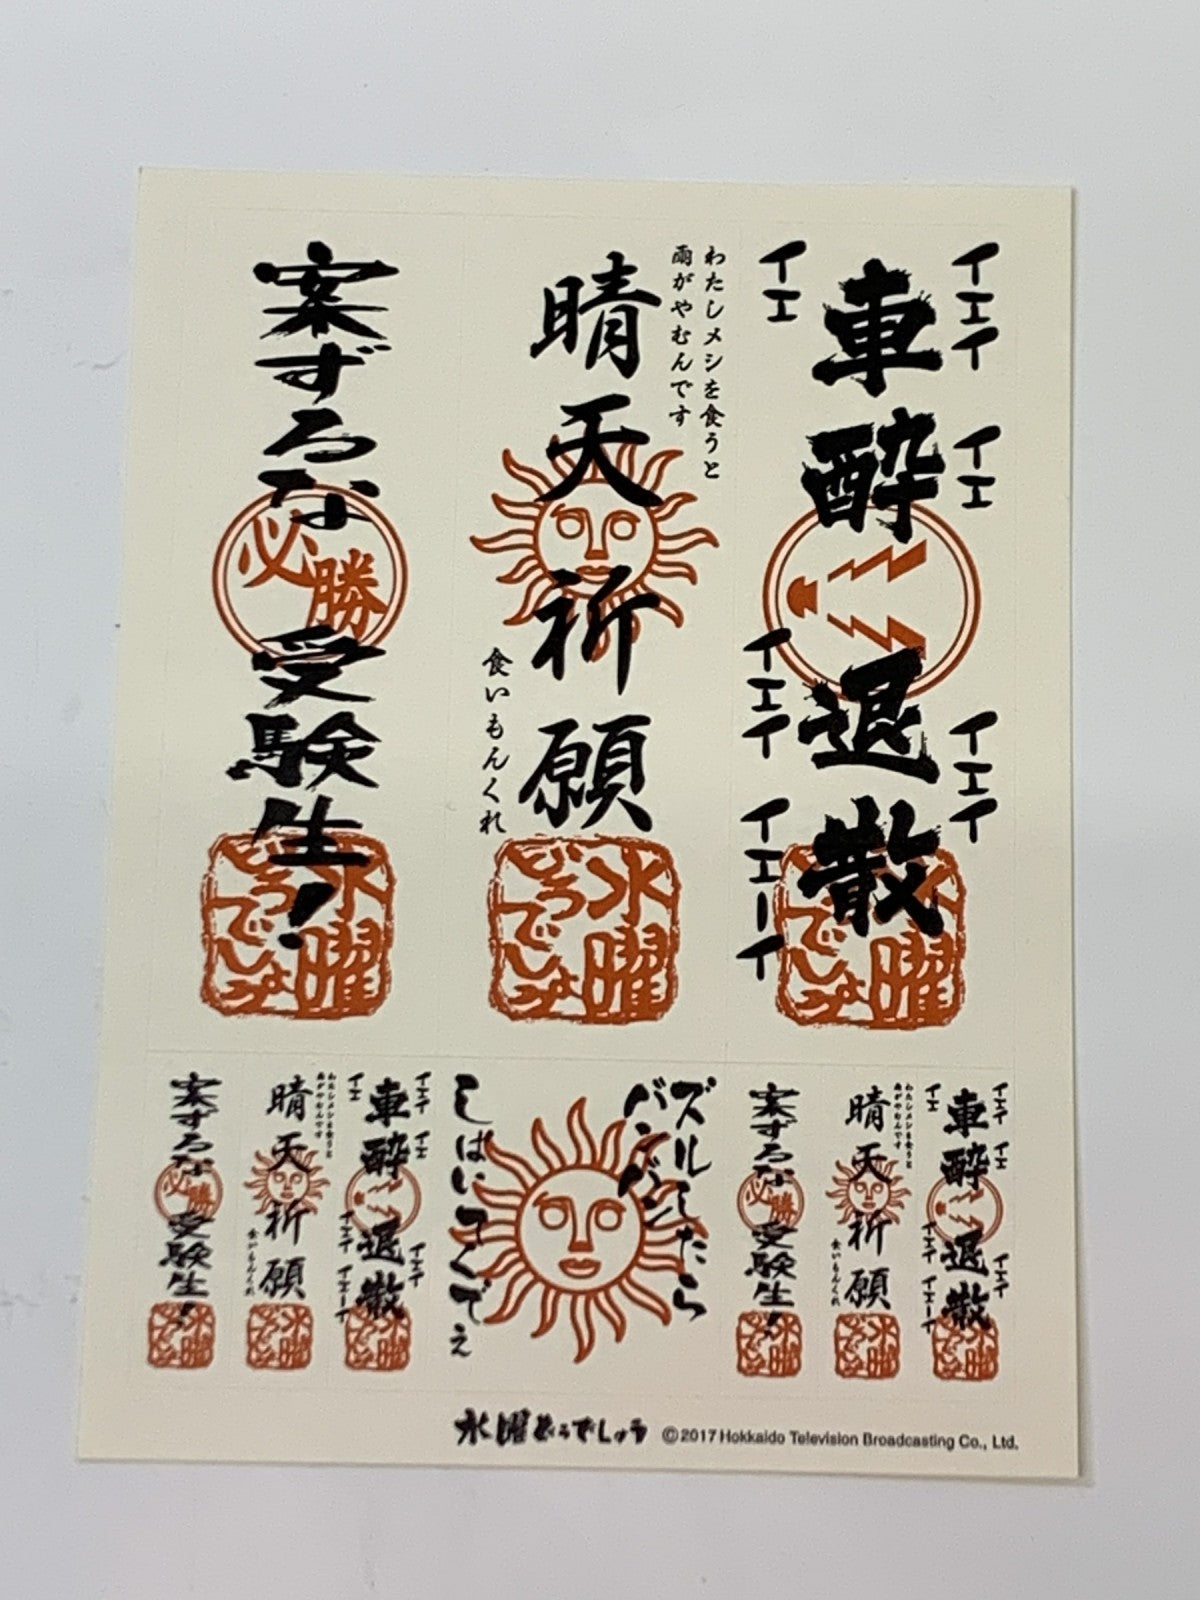 イエイ イエ イエイ
車酔退散
イエ イエイ イエーイ
水曜
どうでしょう
わたしメシを食うと
雨がやむんです
晴天祈願
食いもんくれ
水曜
どうでしょう
案ずるな 受験生!
必勝
水曜
どうでしょう
イエイ イエ イエイ
車酔退散
イエ イエイ イエーイ
わたしメシを食うと
雨がやむんです
晴天祈願
食いもんくれ
案ずるな 受験生!
必勝
ズルしたら
バンバン
しはいてくでえ
イエイ イエ イエイ
車酔退散
イエ イエイ イエーイ
わたしメシを食うと
雨がやむんです
晴天祈願
食いもんくれ
案ずるな 受験生!
必勝
水曜どうでしょう ©2017 Hokkaido Television Broadcasting Co., Ltd.